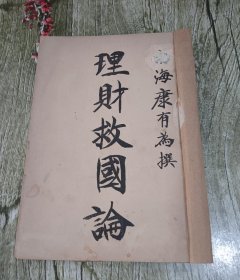 海康有為撰
理財救國論